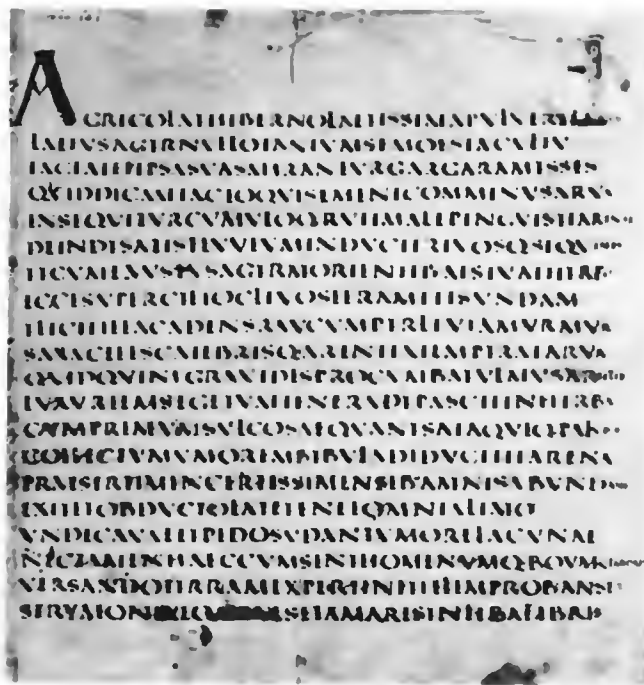 AGRICOLAEHIBERNOLAETISSIMAPVLVERE
LAETVSAGERNVLLOTANTVMSEMOESIACVLTV
IACTATETIPSASVASMIRANTVRGARGARAMESSES
QVIDDICAMIACTOQVISEMINECOMMINVSARVA
INSEQVITVRCVMVLOQRVITMALEPINGVISHARENAE
DEINDESATISFLVVIVMINDVCITRIVOSQSEQVENTIS
ETCVMEXVSTVSAGERMORIENTIBAESTVATHERB
ECCESVPERCILIOCLIVOSITRAMITISVNDAM
ELICITILLACADENSRAVCVMPERLEVIAMVRMVR
SAXACIETSCATEBRISQARENTIATEMPERATARVA
QVIDQVINEGRAVIDISPROCVMBATCVLMVSARISTIS
LVXVRIEMSEGETVMTENERADEPASCITINHERBA
CVMPRIMVMSVLCOSAEQVANTSATAQVIQPAL
COLLECTVMVMOREMBIBVLADEDVCITHARENA
PRAESERTIMINCERTISSIMENSIBAMNISABVNDANS
EXITETOBDVCTOLATETENETOMNIALIMO
VNDECAVAETEPIDOSVDANTVMORELACVNAE
NECTAMENHAECCVMSINTHOMINVMQBOVMQLABORES
VERSANDOTERRAMEXPERTINIHILIMPROBANSER
STRYMONIAEQ ETAMARISINTIBAFIBRIS